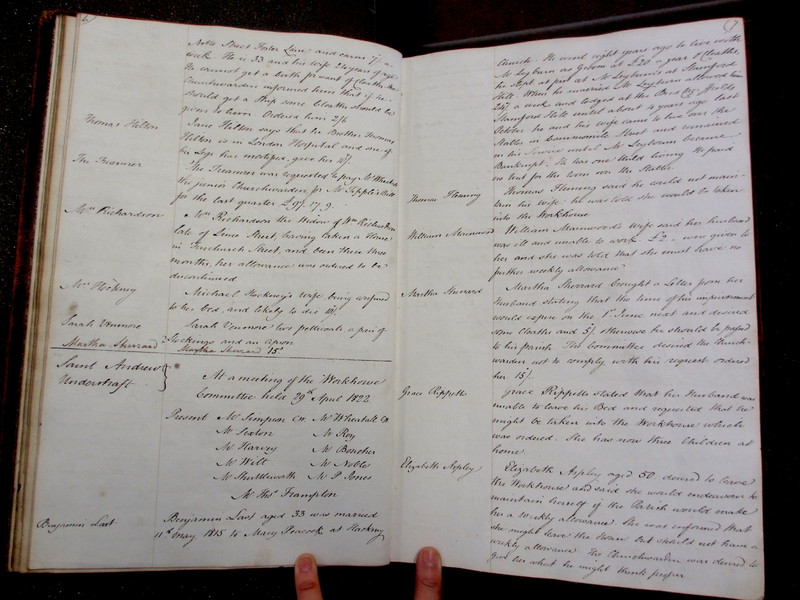 6
Noble Street Foster Lane and earns 7/- a
week. He is 33 and his wife 24 years of age
He cannot get a birth for want of cloaths. The
Churchwarden informed him that if he
should get a ship some Cloaths should be
given to him. Ordered him 2/6
Thomas Hilton
Jane Hilton says that her Brother Thomas
Hilton is in London Hospital and one of
his Legs has mortified, give her
The Treasurer
The Treasurer was requested to pay Mr Wheatall
the junior Churchwarden for Mr Tipple's Bill
for the last quarter £ 17. 9
Mrs Richardson
Mrs Richardson the Widow of Wm Richardson
late of Lime Street, having taken a House
in Fenchurch Street, and been there three
months, her allowance was ordered to be
discontinued
Mrs Hockney
Michael Hockney's wife being confined
to her bed, and likely to die
Sarah Venmore
Sarah Venmore two petticoats a pair of
Stockings and an apron
Martha Sherrard
Martha Sherrard 15/
Saint Andrew
Undershaft
At a meeting of the Workhouse
Committee held 29th April 1822
Present Mr Simpson CW Mr Wheatall CW
Mr Sexton Mr Roy
Mr Harvey Mr Boucher
Mr Witt Mr Noble
Mr Shuttleworth Mr P Jones
Mr Thos Frampton
Benjamin Last
Benjamin Last aged 33 was married
11th May 1815 to Mary Peacock at Hackney
7
Church. He went eight years ago to live with
Mr Leyburn as Groom at £20 a year & Cloaths,
he slept at first at Mr Leyburn's at Stamford
Hill. When he married Mr Leyburn allowed him
24/ a week and lodged at the
Stamford Hill until about 4 years ago last
October he and his wife came to live over the
Stables in Street and remained
in his Service until Mr Leyburn became
Bankrupt. He has one Child living He paid
no rent for the room over the Stable.
Thomas Fleming
Thomas Fleming said he would not main-
tain his wife: he was told she would be taken
into the Workhouse
William Munwood
William Munwood's Wife said her husband
was ill and unable to work £2 - were given to
her and she was told that she must have no
further weekly allowance
Martha Sherrard
Martha Sherrard brought a Letter from her
Husband stating that the time of his imprisonment
would expire on the 1st June next and desired
some Cloaths and 5/ otherwise he should be passed
to his parish. The Committee desired the Church-
warden not to comply with his request ordered
her 15/.
Grace Rippetts
Grace Rippetts stated that her Husband was
unable to leave his Bed and requested that he
might be taken into the Workhouse which
was ordered. She has now three Children at
home.
Elizabeth Aspley
Elizabeth Aspley aged 50 desired to leave
the Workhouse and said she would endeavour to
maintain herself if the Parish would make
her a Weekly allowance. She was informed that
she might leave the House but should not have a
weekly allowance. The Churchwarden was desired to
give her what he might think proper